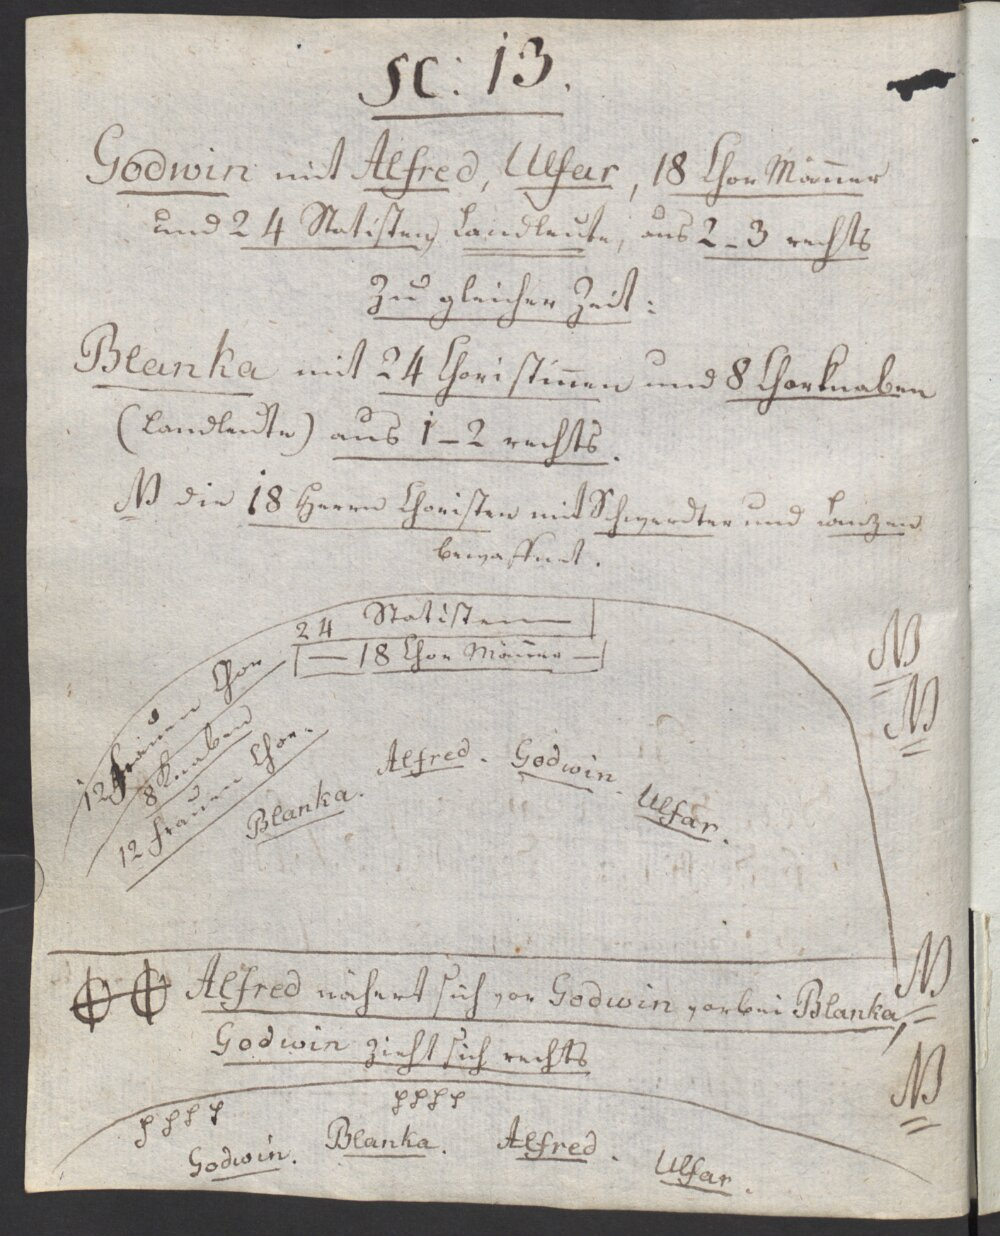 SC: 13.
Godwin mit Alfred, Ulfar, 18 Chor Mañer
und 24 Statisten, Landleute, aus 2-3 rechts
Zu gleicher Zeit:
Blanka mit 24 Choristiñen und 8 Chorknaben
(Landleute) aus 1-2 rechts.
NB die 18 Herrn Choristen mit Schwerdter und Lanzen
bewaffnet.
24 Statisten
18 Chor Mañer
NB
NB
12 Frauen Chor
8 Knaben
12 Frauen Chor.
Blanka. Alfred. Godwin. Ulfar.
NB
Alfred nähert sich vor Godwin vorbei Blanka,
Godwin zieht sich rechts
NB
Godwin. Blanka. Alfred. Ulfar.